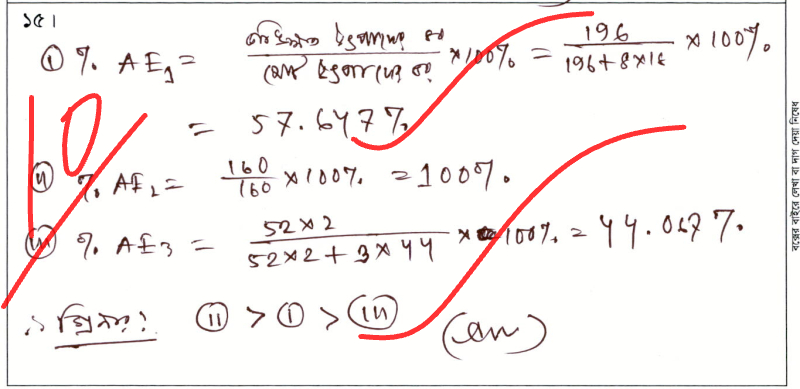 ১৫।
① % AE₁ = কাঙ্ক্ষিত উৎপাদের ভর / মোট উৎপাদের ভর × 100% = 196 / 196 + 8×18 × 100%
= 57.647%
10
② % AE₂ = 160 / 160 × 100% = 100%.
③ % AE₃ = 52×2 / 52×2 + 3×44 × 100% = 44.067%.
∴ ক্রিয়ম: ⅱ > ⅰ > ⅲ (Ans)
বক্সের বাইরে লেখা বা দাগ দেয়া নিষেধ